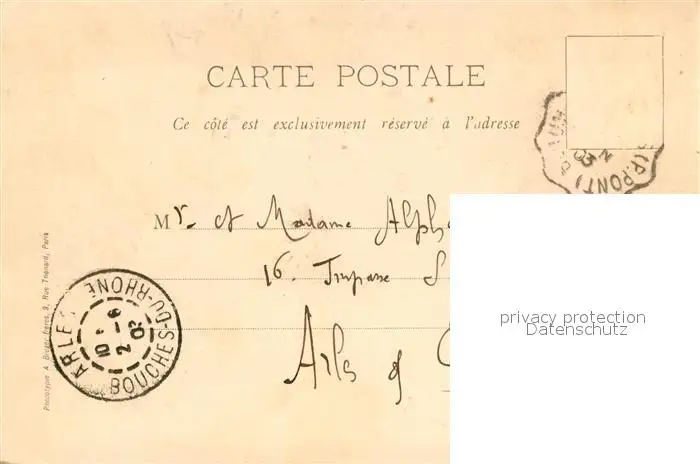 CARTE POSTALE
Ce côté est exclusivement réservé à l'adresse
Mr. et Madame Alph
16.
Arles
privacy protection
Datenschutz
ARLES
BOUCHES-DU-RHONE
10
2 -6
02
(P.PONT)
Phototypie A. Breger frères, 9, Rue Thénard, Paris